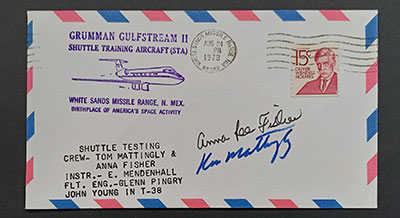 GRUMMAN GULFSTREAM II
SHUTTLE TRAINING AIRCRAFT (STA)
WHITE SANDS MISSILE RANGE, N. MEX.
BIRTHPLACE OF AMERICA'S SPACE ACTIVITY
WHITE SANDS MISSILE RANGE, N.M.
AUG 24
PM
1979
15¢
OLIVER
WENDELL
HOLMES
Anna Lee Fisher
Ken Mattingly
SHUTTLE TESTING
CREW- TOM MATTINGLY &
ANNA FISHER
INSTR.- E. MENDENHALL
FLT. ENG.-GLENN PINGRY
JOHN YOUNG IN T-38